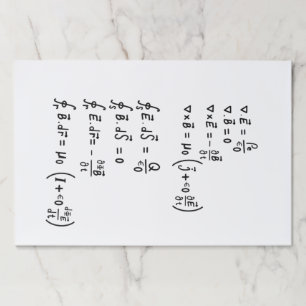 ∇.E⃗ = ρe/ε0
∇.B⃗ = 0
∇×E⃗ = -∂B⃗/∂t
∇×B⃗ = μ0 (J⃗ + ε0 ∂E⃗/∂t)
∮s E⃗.dS⃗ = Q/ε0
∮s B⃗.dS⃗ = 0
∮r E⃗.dr⃗ = -∂ΦB/∂t
∮r B⃗.dr⃗ = μ0 (I + ε0 dΦE/dt)